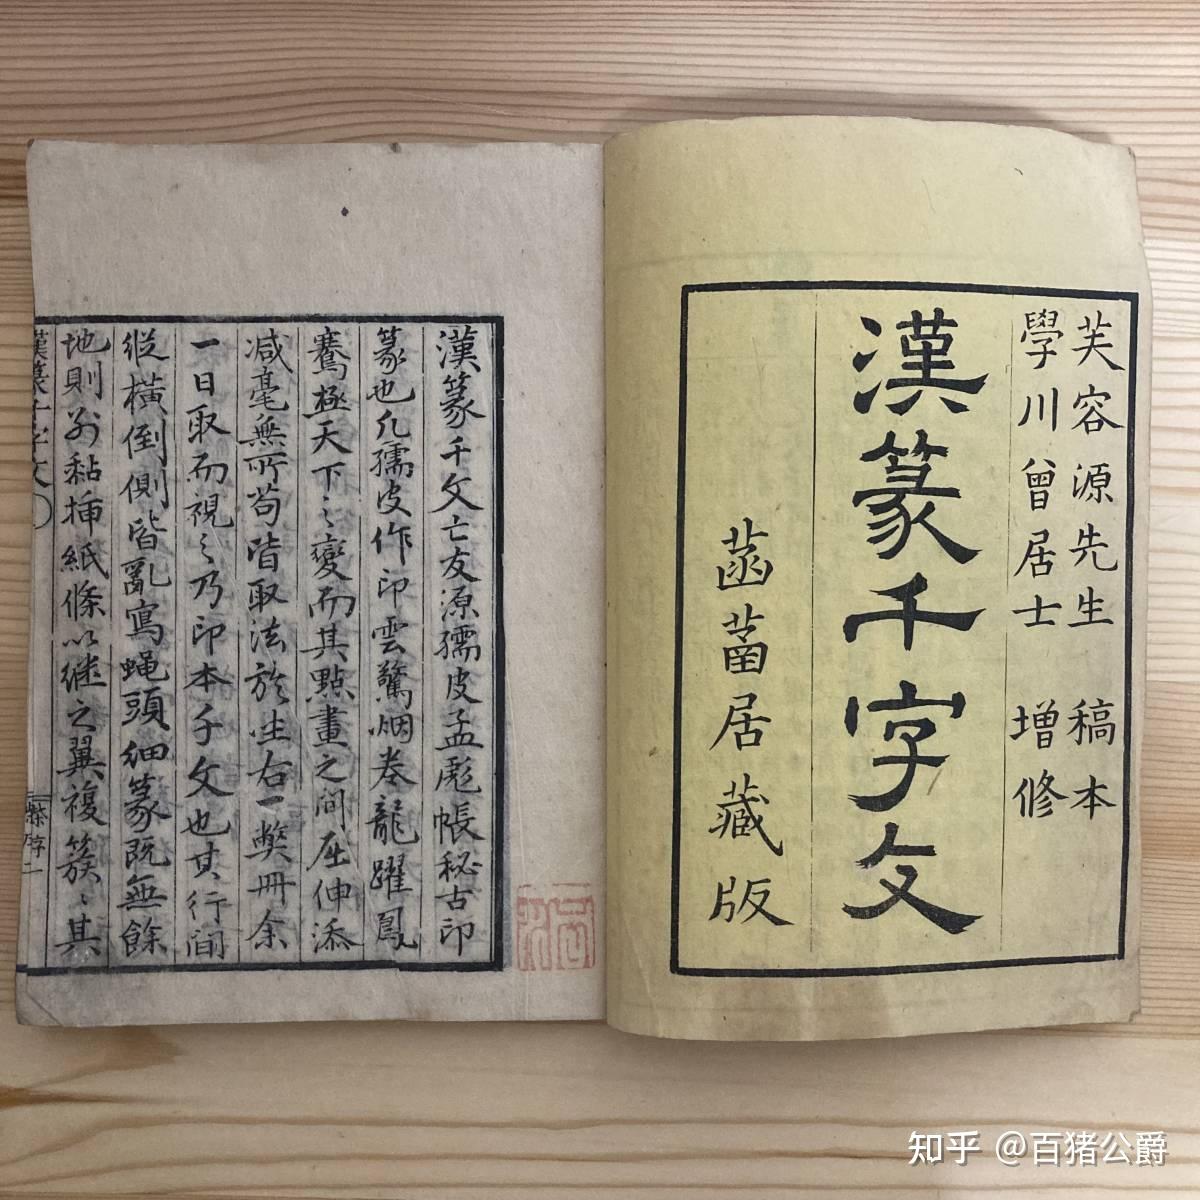 芙容源先生 稿本
學川曾居士 增修
漢篆千字文
菡萏居藏版
漢篆千文亡友源孺皮孟彪帳秘古印
篆也凡孺皮作印雲驚烟卷龍躍鳳
騫極天下之變而其點畫之間屈伸添
減毫無所苟皆取法於坐右一獘冊余
一日取而視之乃印本千文也其行間
縱橫倒側皆亂寫蝿頭細篆既無餘
地則別黏插紙條以继之翼複簇〻其
漢篆千字文
知乎 @百猪公爵